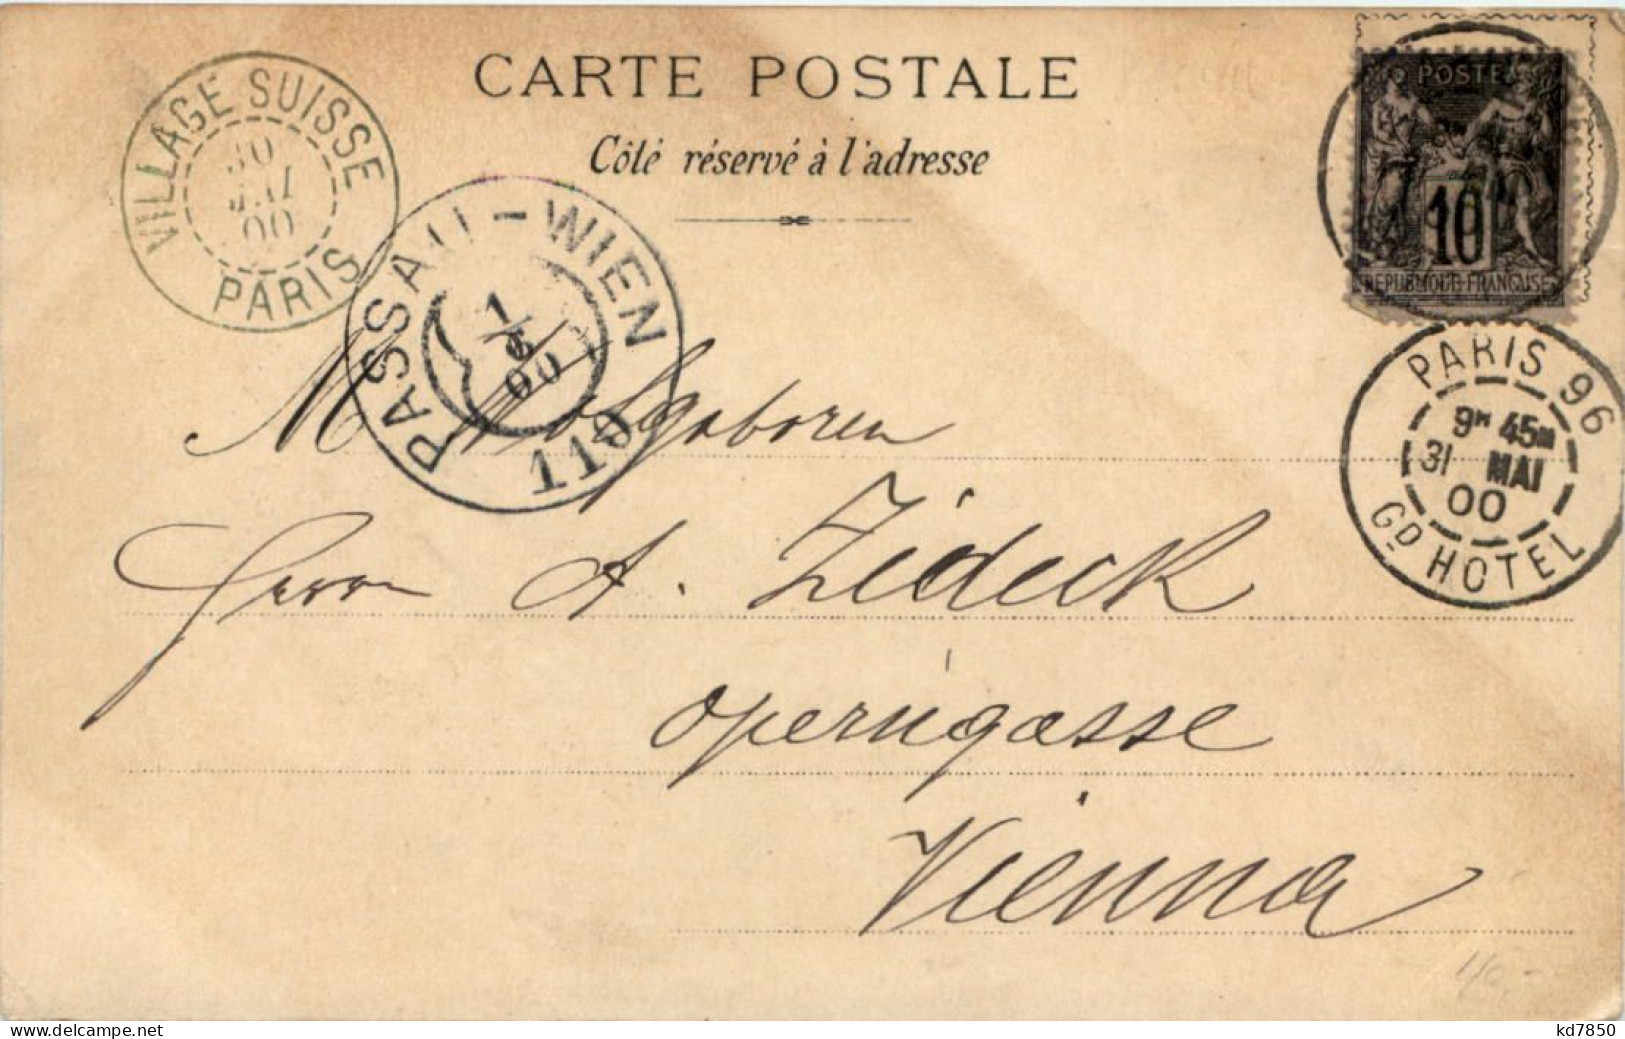 CARTE POSTALE
Côté réservé à l'adresse
VILLAGE SUISSE
30
MAI
00
PARIS
PASSAU-WIEN
1/6
00
110
POSTES
10
REPUBLIQUE FRANÇAISE
PARIS 96
9M 45m
31 MAI
00
GD HOTEL
M Wolgeboren
Herrn A. Zideck
operngasse
Vienna
40,-
kd7850